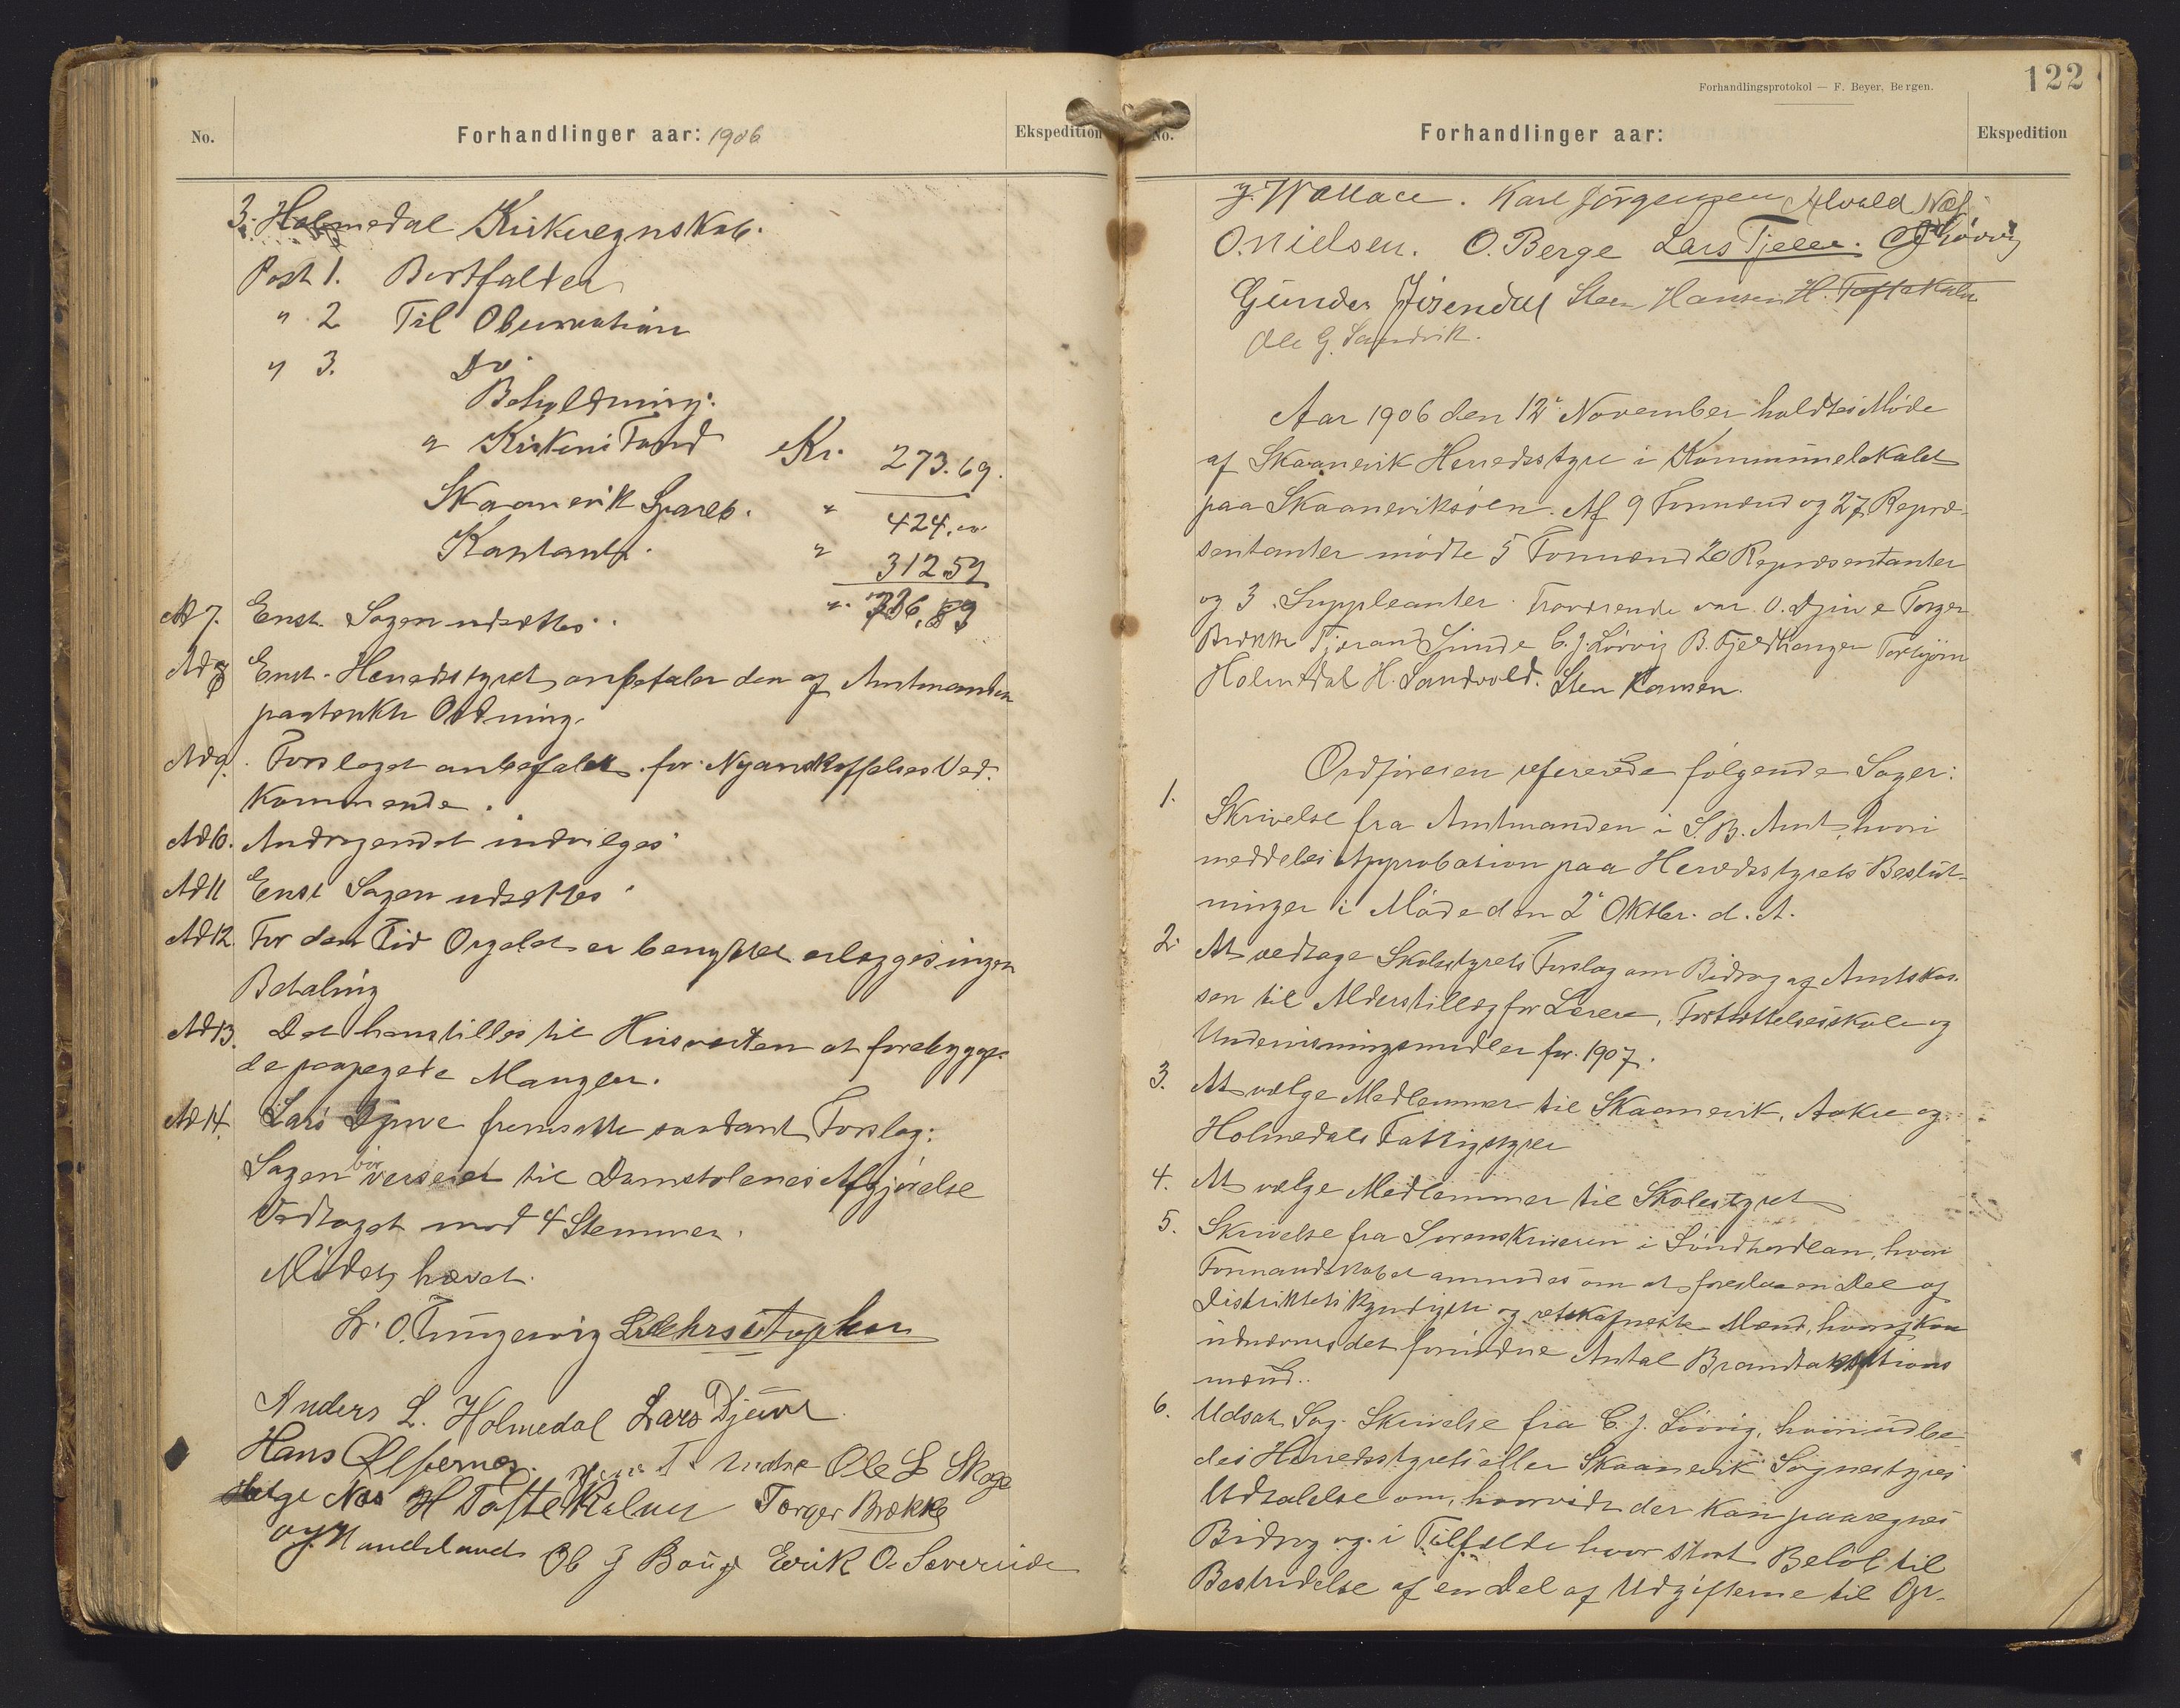 No.
Forhandlinger aar: 1906
Ekspedition
3. Holmedal Kirkeregnskab.
Post 1. Bortfalder
" 2 Til Observation
" 3. Do.
Beholdning:
a Kirkens Fond Kr. 273.69.
Skaanevik Spareb. " 424.
Kontant. " 312.59
Ad 7. Enst. Sagen udsættes.
Ad 8 Enst. Herredsstyret anbefaler den af Amtmanden
paatænkte Ordning.
Ad 9. Forslaget anbefalet for Nyanskaffelses Ved-
kommende.
Ad 10. Andragendet indvilges
Ad 11 Enst Sagen udsættes
Ad 12 For den Tid Orgelet er benyttet erlægges ingen
Betaling
Ad 13. Det henstilles til Husverten at forebygge
de paapegede Mangler.
Ad 14. Lars Djuve fremsatte saadant Forslag:
Sagen bør til Domstolenes Afgjørelse
Vedtaget mod 4 Stemmer.
Mødet hævet.
O. Tungesvig
Anders L. Holmedal Lars Djuve
Hans Ølfernes. Ole L Skoge
Helge Næs H Toftekalven Torger Brekke
Ob J Baug Erik O. Severeide
Forhandlingsprotokol — F. Beyer, Bergen.
122
No.
Forhandlinger aar:
Ekspedition
J. Wallace. Karl Jørgensen Alvald Næs
O. Nielsen. O. Berge Lars Tjelle. C J Løvvig
Gunder Isendal Sten Hansen H. Toftekalv
Ole G. Sandvik.
Aar 1906 den 12. November holdtes Møde
af Skaanevik Herredsstyre i Kommunelokalet
paa Skaaneviksøen. Af 9 Formænd og 27 Repræ-
sentanter mødte 5 Formænd 20 Repræsentanter
og 3 Suppleanter. Fraværende var O. Djuve Torger
Brekke Tjeran Gjunde C. J. Løvvig B. Fjeldhaugen Torbjørn
Holmedal H. Sandvold. Sten Hansen.
Ordføreren refererede følgende Sager:
1. Skrivelse fra Amtmanden i S. B. Amt, hvori
meddeles Approbation paa Herredsstyrets Beslut-
ninger i Møde den 2. Oktbr. d. A.
2. At vedtage Skolestyrets Forslag om Bidrag af Amtskas-
sen til Alderstillæg for Lærere, Fortsættelsesskole og
Undervisningsmidler for 1907.
3. At vælge Medlemmer til Skaanevik, Aakre og
Holmedals Fattigstyrer
4. At vælge Medlemmer til Skolestyret
5. Skrivelse fra Sorenskriveren i Søndhordlan, hvori
Formandskabet anmodes om at foreslaa en Del af
Distriktets kyndigste og retskafneste Mænd, hvoraf kan
udnævnes det fornødne Antal Brandtakstations
mænd.
6. Udsat Sag. Skrivelse fra C. J. Løvvig, hvori udbe-
des Herredsstyrets eller Skaanevik Sognestyres
Udtalelse om, hvorvidt der kan paaregnes
Bidrag og i Tilfælde hvor stort Beløb til
Bestridelse af en Del af Udgifterne til Op-